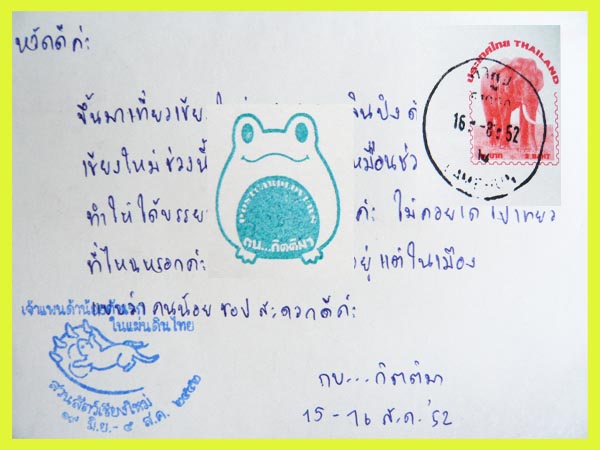 หวัดดีค่ะ
ประเทศไทย THAILAND
16 -8- 52
LAMPHUN
2 BAHT
ขึ้นมาเที่ยวเชียงใหม่ ปิง
เชียงใหม่ช่วงนี้ หมือนช่ว
ทำให้ได้บรรยา ค่ะ ไม่ค่อยได้ไปเที่ยว
ที่ไหนหรอกค่ะ ยู่แต่ในเมือง
คนน้อย ชอป สะดวกดีค่ะ
กบ...กิตติมา
เจ้าแพนด้าน้อย
ในแผ่นดินไทย
สวนสัตว์เชียงใหม่
มิ.ย. - ๕ ส.ค. ๒๕๕๒
กบ...กิตติมา
15-16 ส.ค.'52